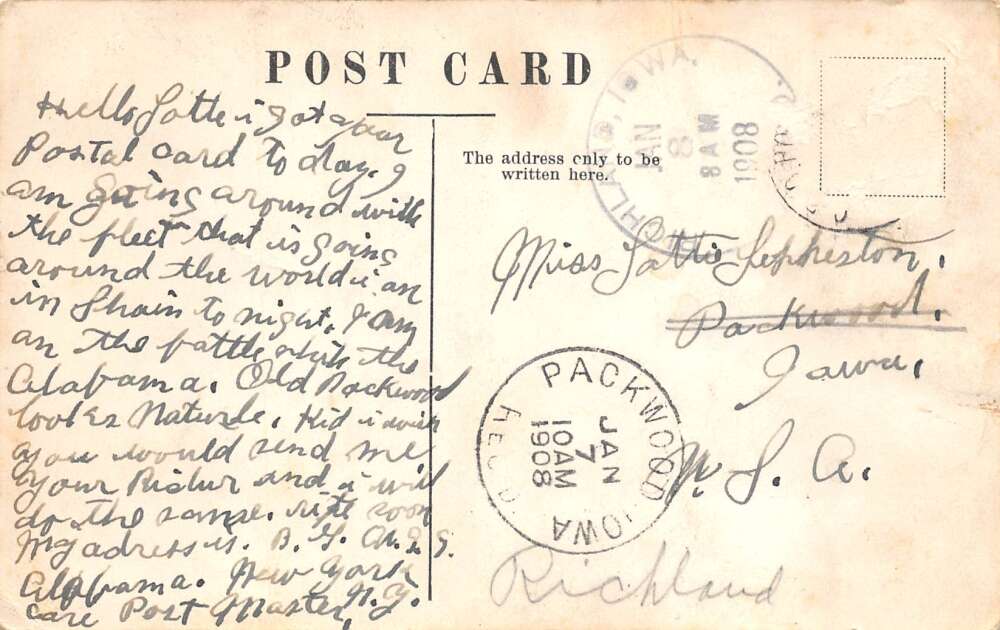 POST CARD
Hello Lottie i got your
Postal card to day. I
am going around with
the fleet that is going
around the world i an
in Spain to night. I am
an the battle ship the
Alabama. Old Packwood
lookes Naturle. Kid i wish
you would send me
your Pictur and i will
do the same. rite soon
My adress is. B. G. U. S. S.
Alabama. New York
N. Y.
care Post Master,
The address only to be
written here.
RICHLAND, IOWA.
JAN
8
8 AM
1908
Miss Lottie
Packwood.
Iowa,
U. S. A.
PACKWOOD IOWA
REC'D
JAN
7
10AM
1908
Richland